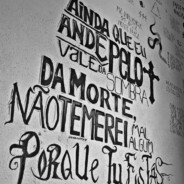 AINDA QUE EU
ANDE PELO
VALE DA SOMBRA
DA MORTE,
NÃO TEMEREI MAL
ALGUM
PORQUE TU ESTAS